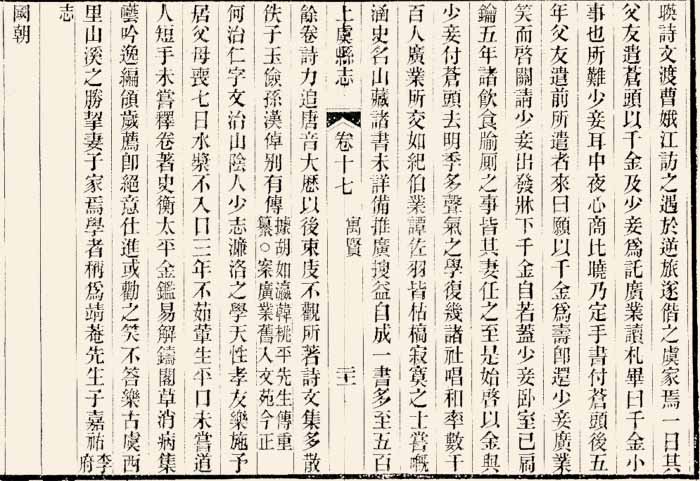 瑛詩文渡曹娥江訪之遇於逆旅遂偕之虞家焉一日其
父友遣蒼頭以千金及少妾爲託廣業讀札畢曰千金小
事也所難少妾耳中夜心商比曉乃定手書付蒼頭後五
年父友遣前所遣者來曰願以千金爲壽卽還少妾廣業
笑而啓關請少妾出發牀下千金自若蓋少妾卧室已扃
鑰五年諸飲食踰厠之事皆其妻任之至是始啓以金與
少妾付蒼頭去明季多聲氣之學復幾諸社唱和率數千
百人廣業所交如紀伯業譚佐羽皆枯槁寂寞之士嘗嘅
涵史名山藏諸書未詳備推廣搜益自成一書多至五百
上虞縣志 卷十七 寓賢 二十一
餘卷詩力追唐音大厯以後東庋不觀所著詩文集多散
佚子玉儉孫漢倬别有傳據胡如瀛韓桃平先生傳重
纂○案廣業舊入文苑今正
何治仁字文治山陰人少志濂洛之學天性孝友樂施予
居父母喪七日水漿不入口三年不茹葷生平口未嘗道
人短手未嘗釋卷著史衡太平金鑑易解鑄閣草消病集
囈吟逸編領歲薦卽絕意仕進或勸之笑不答樂古虞西
里山溪之勝挈妻子家焉學者稱爲靖菴先生子嘉祐李
府
志
國朝